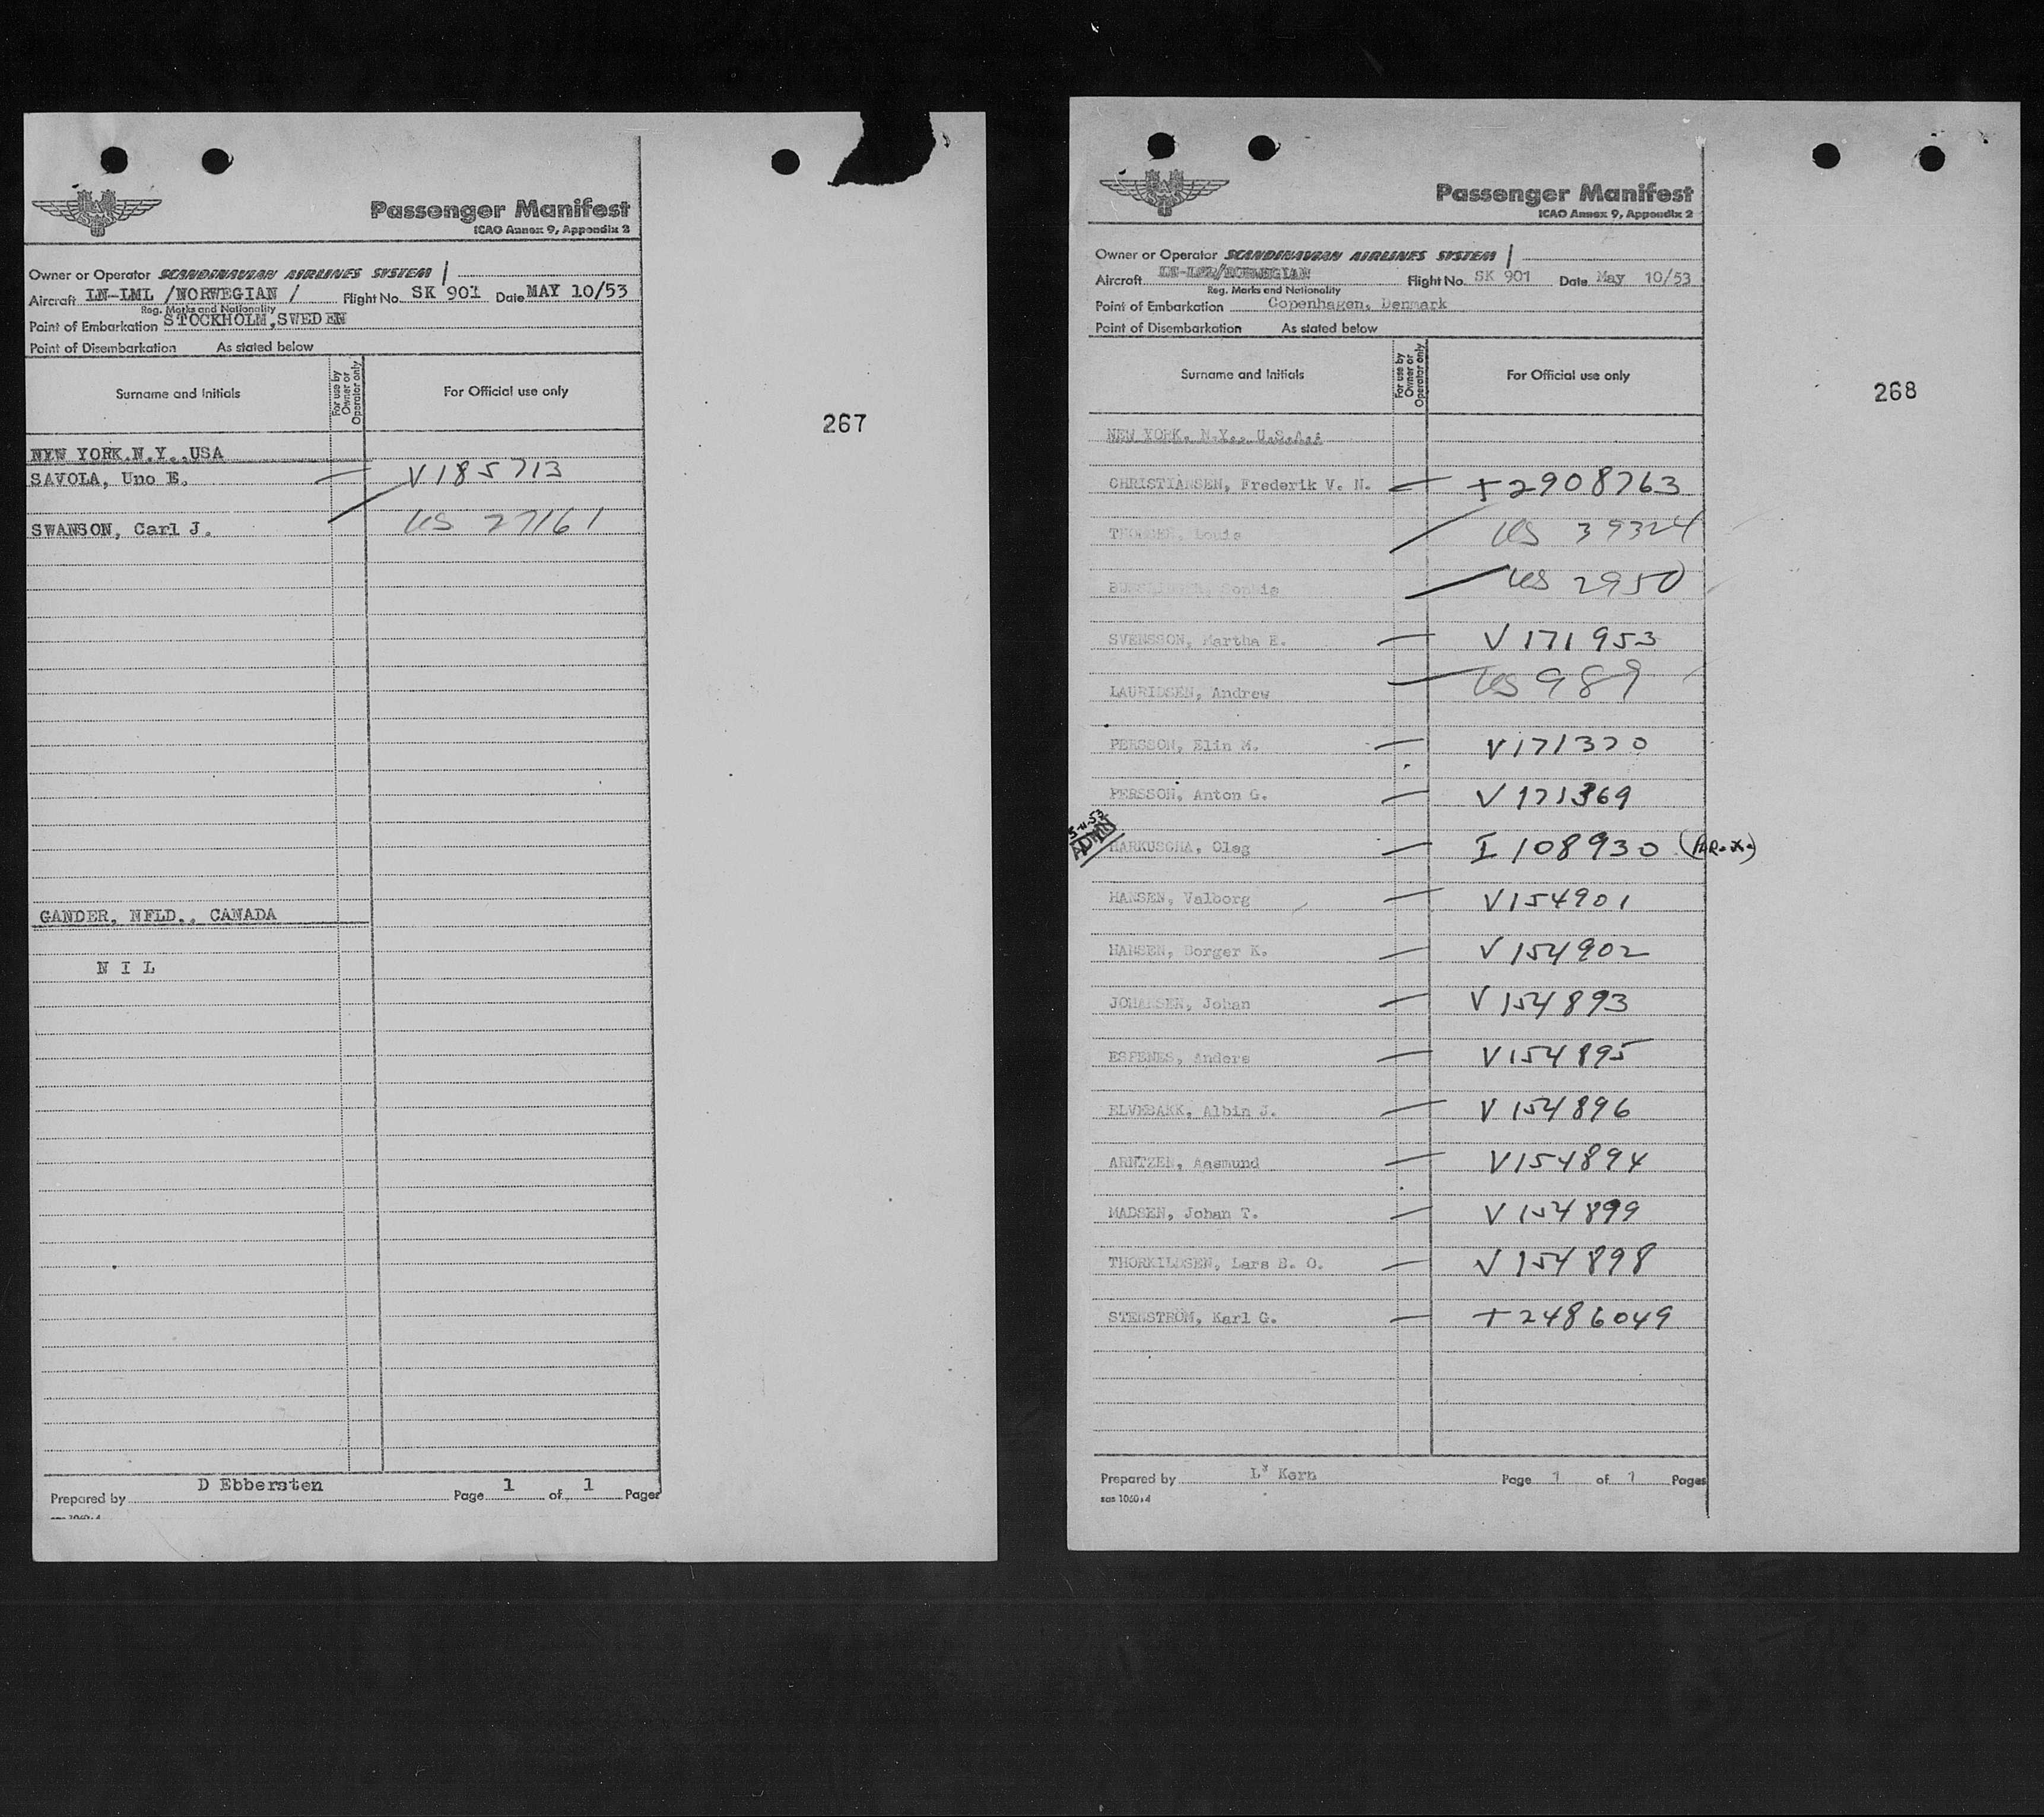 Passenger Manifest
ICAO Annex 9, Appendix 2
Owner or Operator SCANDINAVIAN AIRLINES SYSTEM /
Aircraft LN-LML /NORWEGIAN / Flight No. SK 901 Date MAY 10/53
Reg. Marks and Nationality
Point of Embarkation STOCKHOLM,SWEDEN
Point of Disembarkation As stated below
Surname and Initials For use by Owner or Operator only For Official use only
267
NEW YORK.N.Y..USA
SAVOLA, Uno E. V185713
SWANSON, Carl J. US 27161
GANDER, NFLD., CANADA
N I L
Prepared by D Ebbersten Page 1 of 1 Pages
Passenger Manifest
ICAO Annex 9, Appendix 2
Owner or Operator SCANDINAVIAN AIRLINES SYSTEM /
Aircraft LN-LML/NORWEGIAN Flight No. SK 901 Date May 10/53
Reg. Marks and Nationality
Point of Embarkation Copenhagen, Denmark
Point of Disembarkation As stated below
Surname and Initials For use by Owner or Operator only For Official use only
268
NEW YORK, N.Y., U.S.A.:
CHRISTIANSEN, Frederik V. N. T2908763
Louis US 39324
Sophie US 2950
SVENSSON, Martha E. V171953
LAURIDSEN, Andrew US 989
PERSSON, Elin M. V171370
PERSSON, Anton G. V171369
5-11-53
ADMIT
HARKUSCHA, Oleg I108930
HANSEN, Valborg V154901
HANSEN, Borger K. V154902
JOHANSEN, Johan V154893
ESPENES, Anders V154895
ELVEBAKK, Albin J. V154896
ARNTZEN, Aasmund V154894
MADSEN, Johan T. V154899
THORKILDSEN, Lars B. O. V154898
STENSTRÖM, Karl G. T2486049
Prepared by L Kern Page 1 of 1 Pages
sas 1060:4